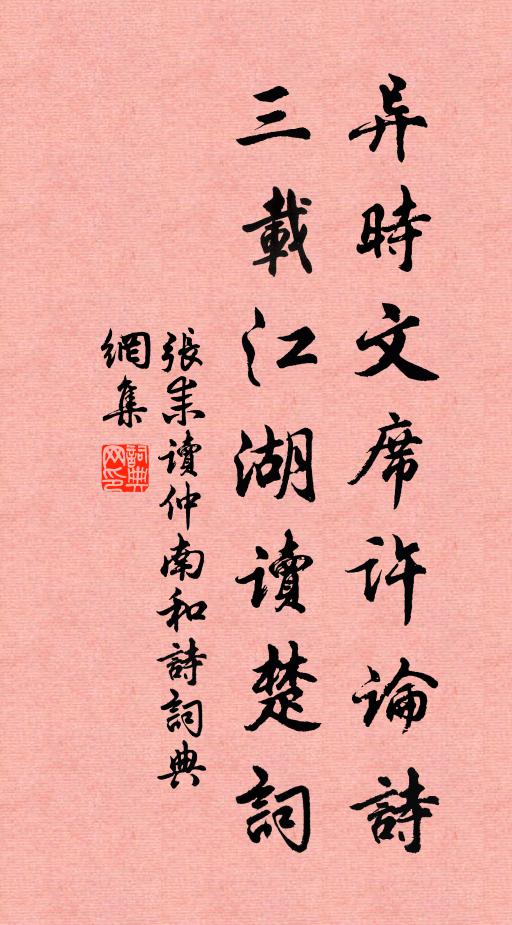 异時文席許論詩
三載江湖讀楚詞
張耒讀仲南和詩詞典
網集
詞典
网印